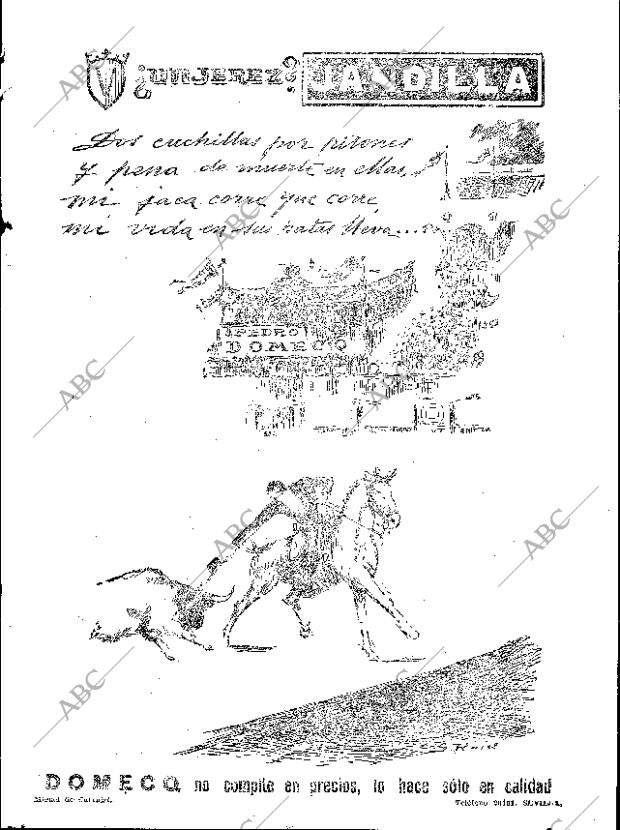 ¿UN JEREZ? JANDILLA
Dos cuchillas por pitones
y pena de muerte en ellas,
mi jaca corre que corre,
mi vida en sus patas lleva...
PEDRO
DOMECQ
DOMECQ, no compite en precios, lo hace sólo en calidad